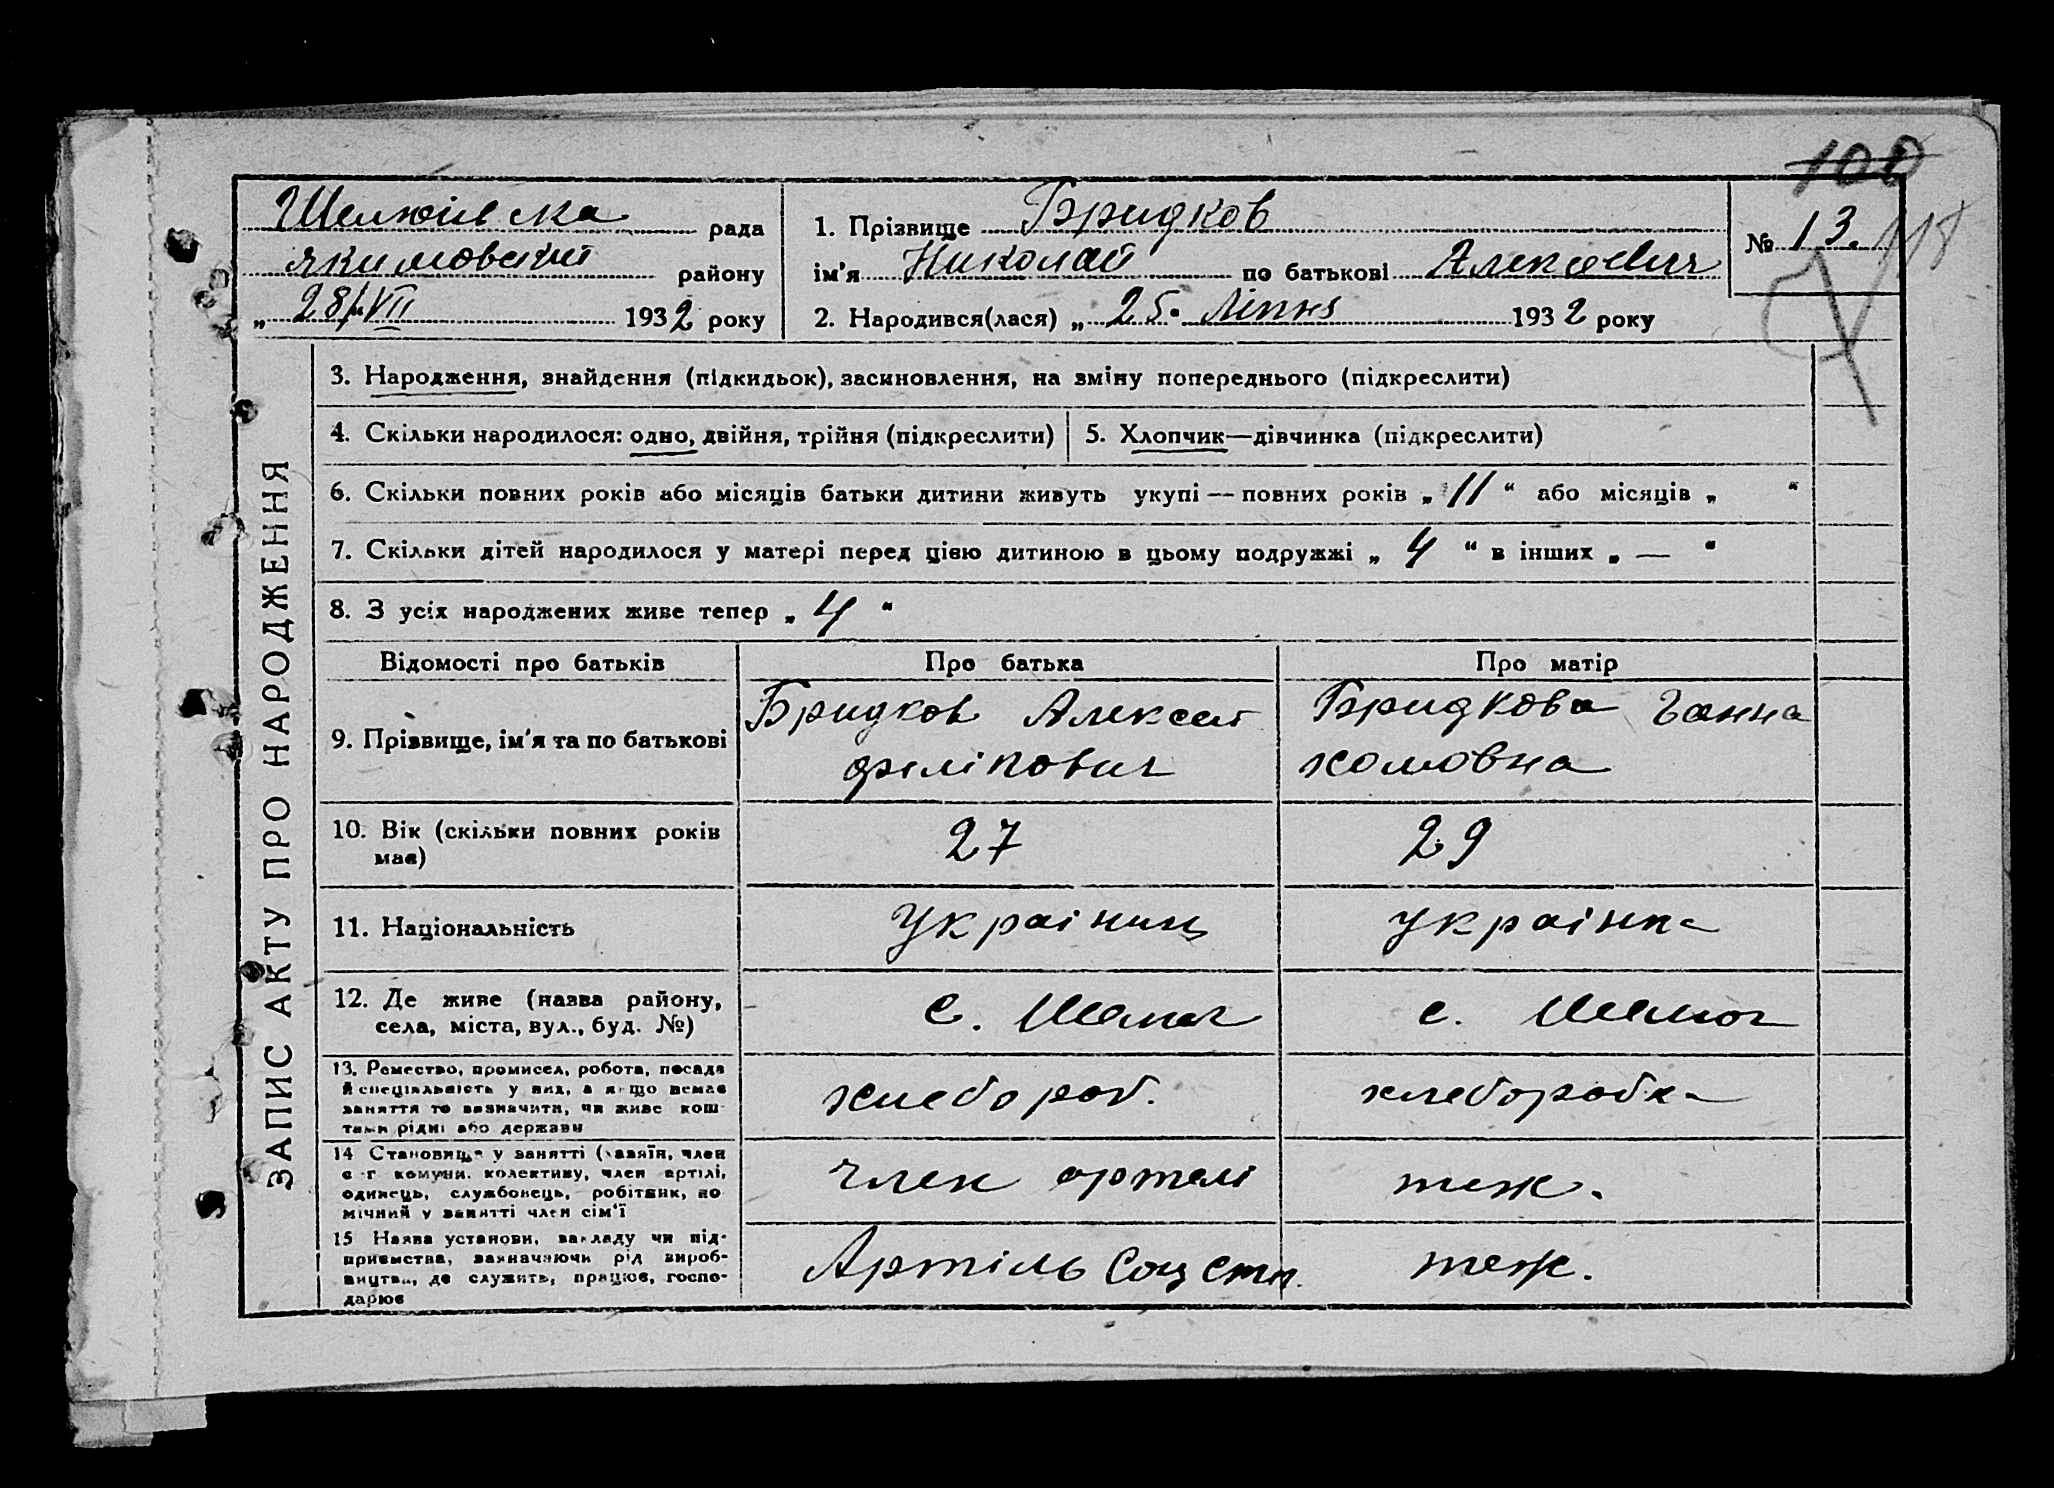 100
Шелюгівска рада
Якимовский району
„ 28/VII 1932 року
1. Прізвище Бридков
ім'я Николай по батькові Алексеевич
2. Народився(лася) „ 25 Ліпня 1932 року
№ 13. 118
ЗАПИС АКТУ ПРО НАРОДЖЕННЯ
3. Народження, знайдення (підкидьок), засиновлення, на зміну попереднього (підкреслити)
4. Скільки народилося: одно, двійня, трійня (підкреслити)
5. Хлопчик—дівчинка (підкреслити)
6. Скільки повних років або місяців батьки дитини живуть укупі — повних років „ 11 “ або місяців „ “
7. Скільки дітей народилося у матері перед цією дитиною в цьому подружжі „ 4 “ в інших „ — “
8. З усіх народжених живе тепер „ 4 “
Відомості про батьків
Про батька
Про матір
9. Прізвище, ім'я та по батькові
Бридков Алексей
філіпович
Бридкова Ганна
хомовна
10. Вік (скільки повних років
має)
27
29
11. Національність
Украіниць
украінка
12. Де живе (назва району,
села, міста, вул., буд. №)
с.
с.
13. Ремество, промисел, робота, посада
й спеціяльність у них, а якщо немає
заняття то визначити, чи живе кош-
тами рідні або держави
хлебороб.
хлеборобка
14 Становище у занятті (хазяїн, член
с-г комуни, колективу, член артілі,
одинець, службовець, робітник, по
мічний у занятті член сім'ї
член артелі
теж.
15 Назва установи, закладу чи під-
приємства, зазначаючи рід вироб-
ництва, де служить, працює, госпо-
дарює
Артіль Соц Степ.
теж.